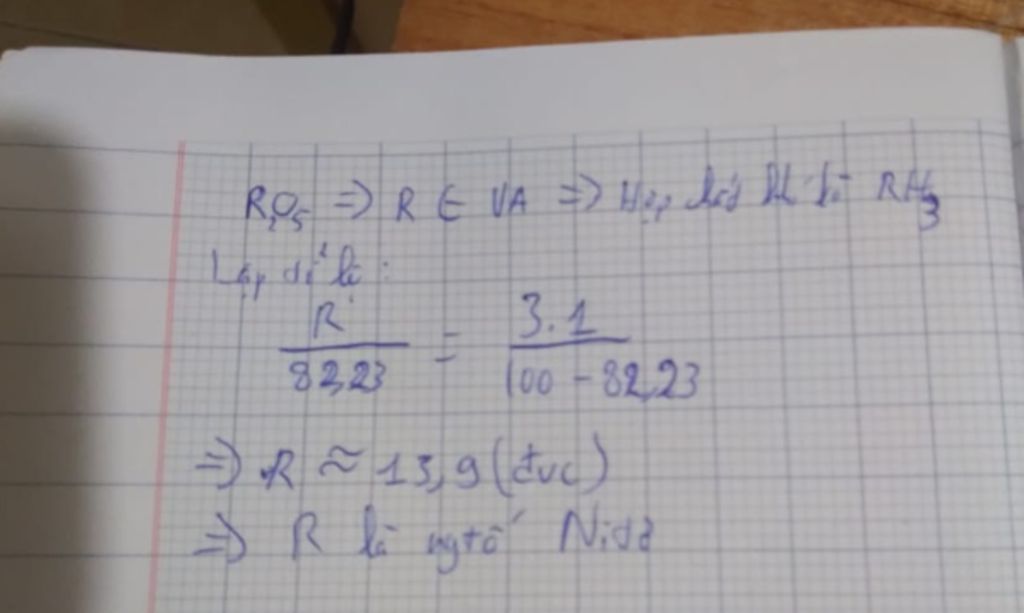 R₂O₅ => R ∈ VA => Hợp chất khí là RH₃
Lập tỉ lệ:
R / 82,23 = 3.1 / 100 - 82,23
=> R ≈ 13,9 (đvc)
=> R là ngtố Nitơ